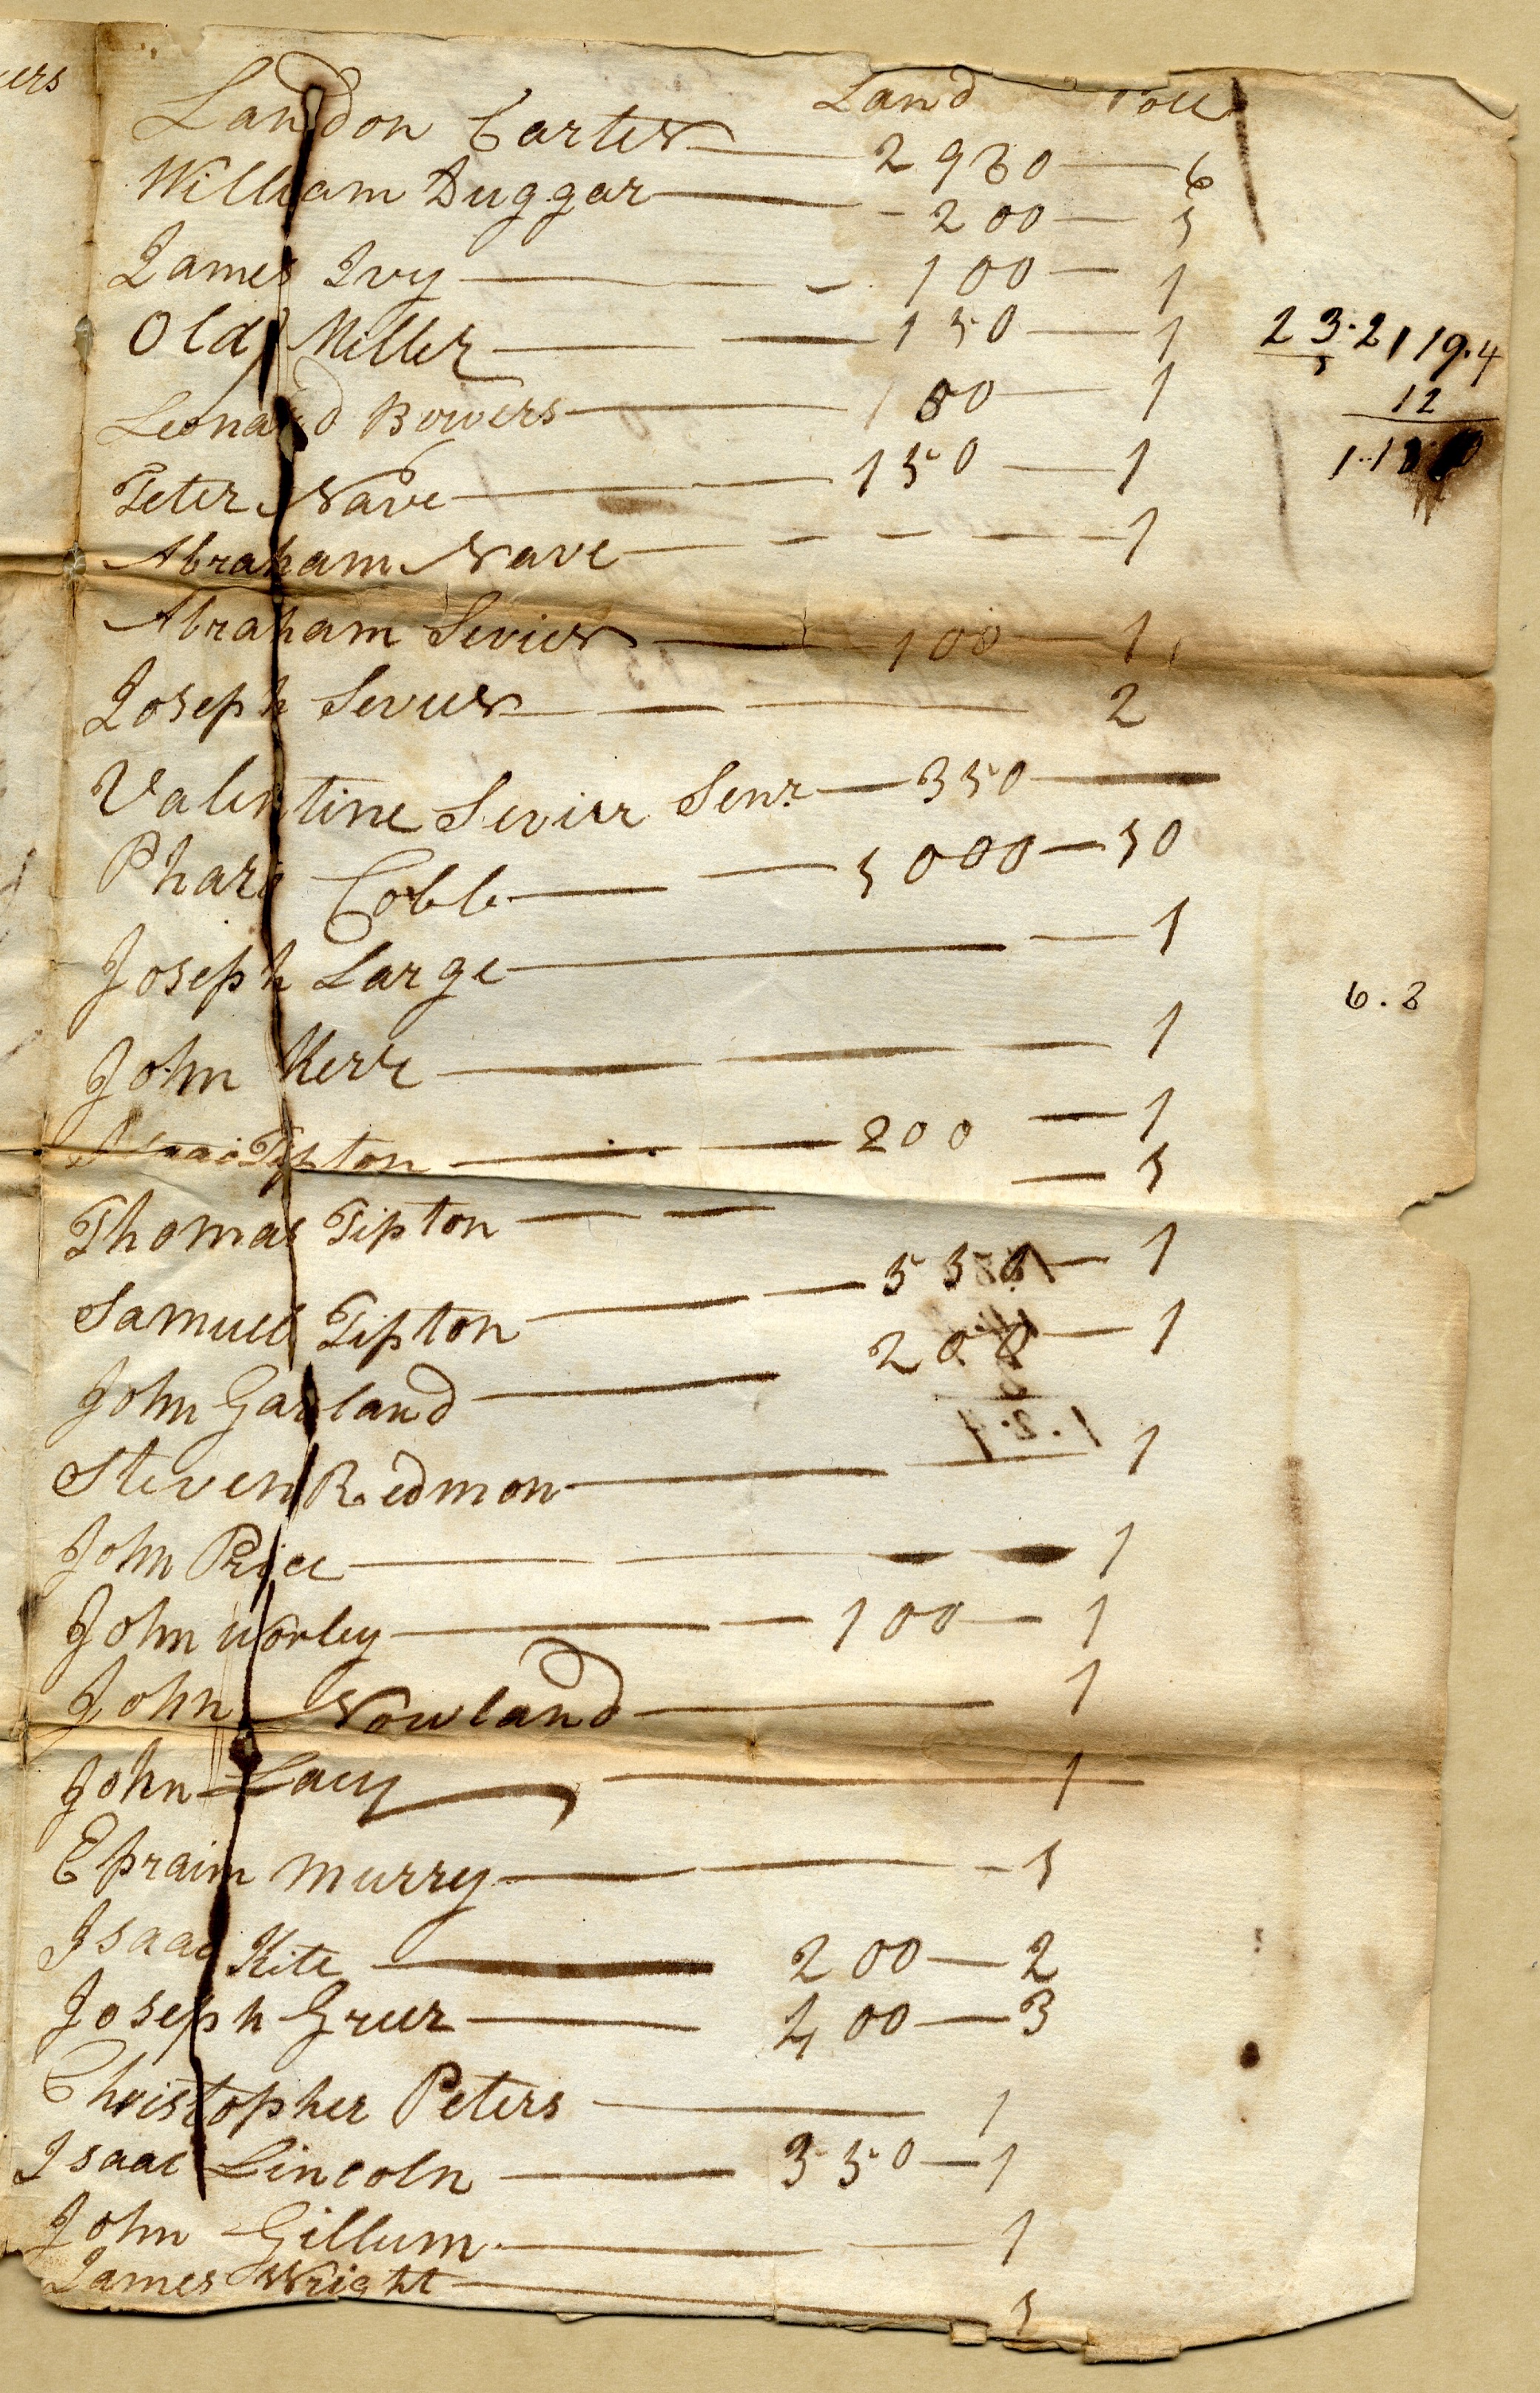 ers
Land Poll
Landon Carter 2960 6
William Duggar 200 5
James Ivy 100 1
Old Miller 150 1
23.2 119.4
5 12
Leonard Bowers 100 1
Peter Nave 150 1
Abraham Nave 1
Abraham Sevier 100 1
Joseph Sevier 2
Valentine Sevier Senr 350
Phare Cobb 5000 50
Joseph Large 1
6.2
John Kerr 1
Isaac Tipton 200 1
Thomas Tipton 5
Samuel Tipton 550 1
John Garland 200 1
Steven Redmon 1
John Price 1
John Worley 100 1
John Nowland 1
John Lacy 1
Ephraim Murrey 5
Isaac Kite 200 2
Joseph Greer 400 3
Christopher Peters 1
Isaac Lincoln 350 1
John Gillum 1
James Wright 5